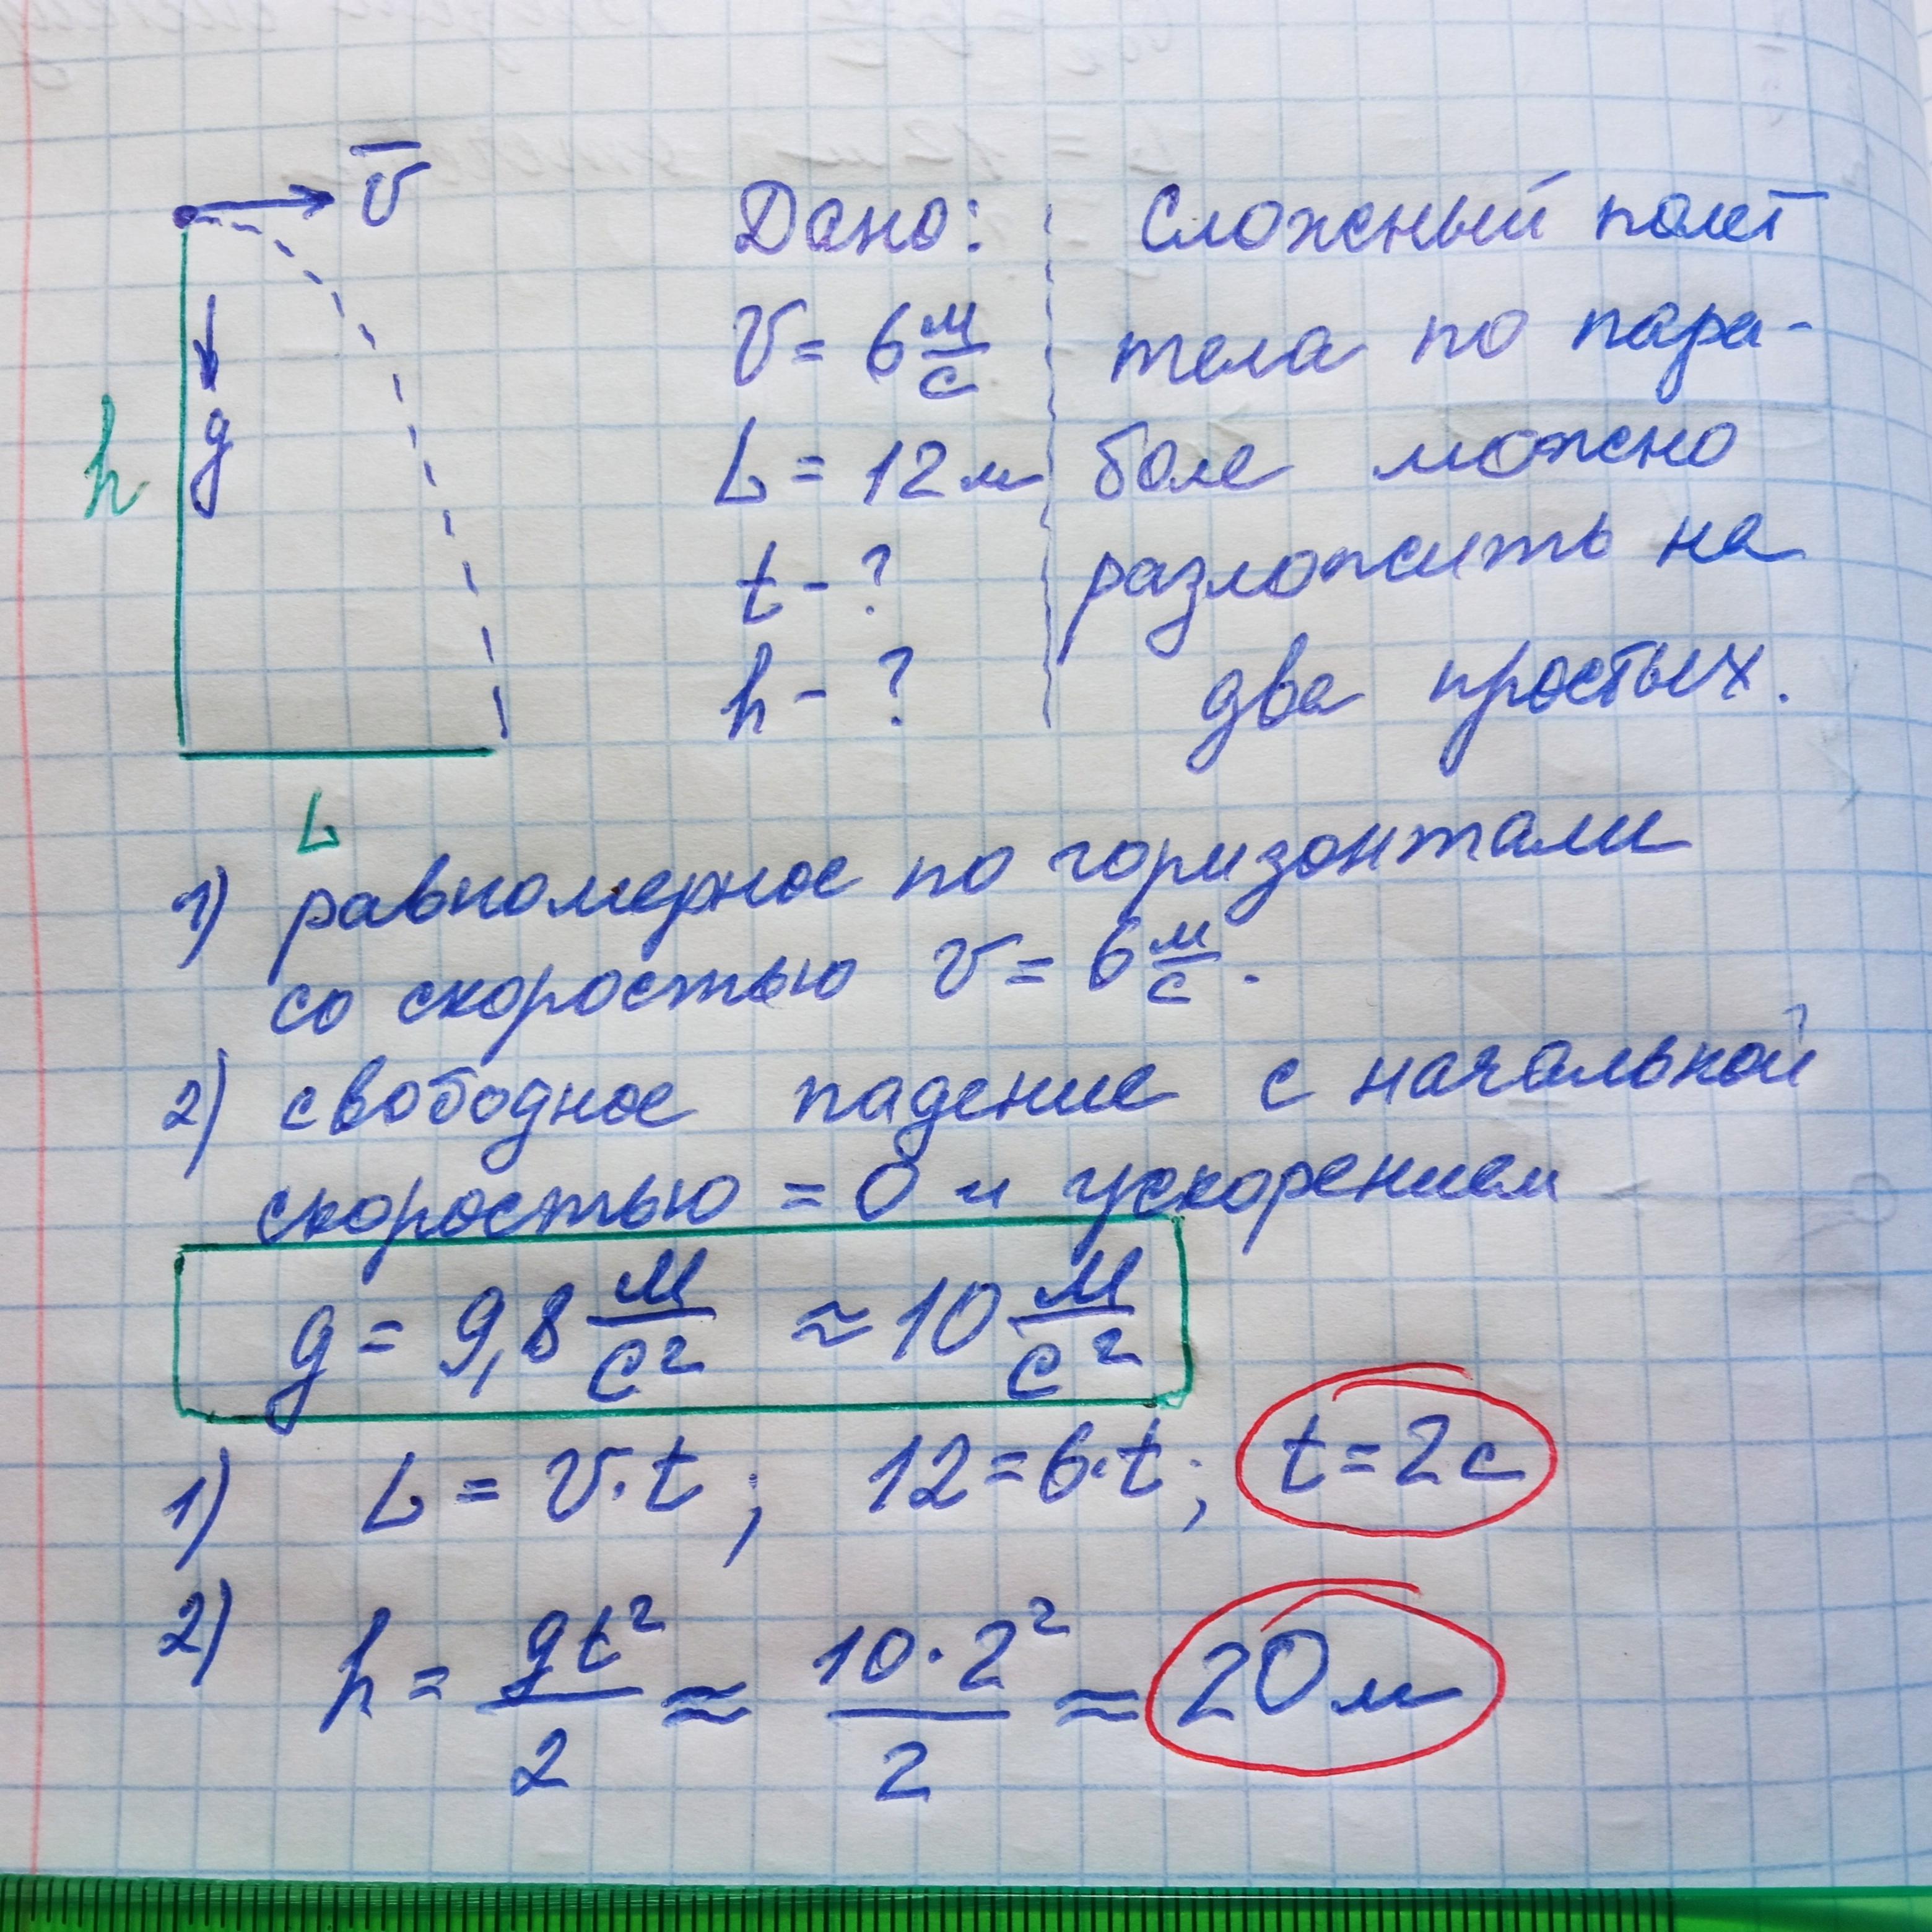 v̅
Дано: Сложный полет
v = 6 м/с тела по пара-
g
h
L = 12 м боле можно
t - ? разложить на
h - ? два простых.
L
1) равномерное по горизонтали
со скоростью v = 6 м/с.
2) свободное падение с начальной
скоростью = 0 и ускорением
g = 9,8 м/с² ≈ 10 м/с²
1) L = v·t ; 12 = 6·t ; t = 2 с
2) h = gt²/2 ≈ 10·2²/2 ≈ 20 м